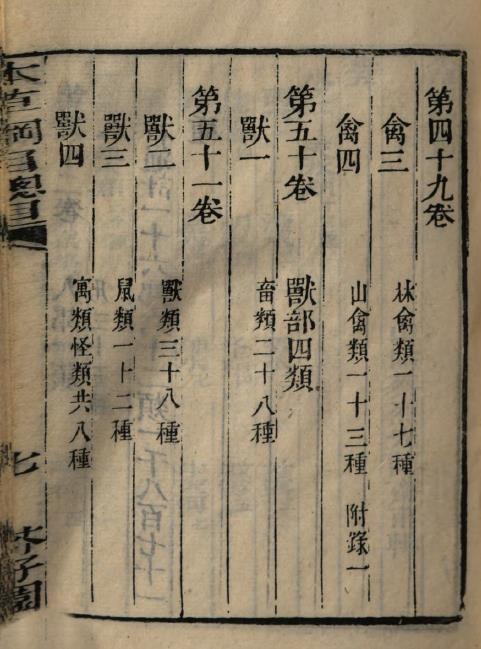 第四十九卷
禽三 林禽類一十七種
禽四 山禽類一十三種 附錄一
第五十卷 獸部四類
獸一 畜類二十八種
第五十一卷
獸二 獸類三十八種
獸三 鼠類一十二種
獸四 寓類怪類共八種
本草綱目總目 七 芥子園